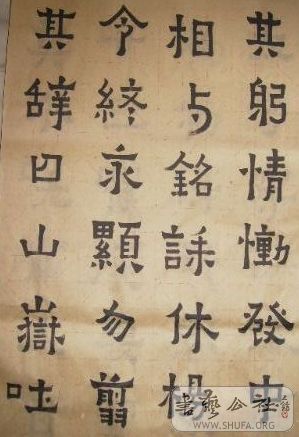 其躬情慟發中
相与銘誄休楊
令終永顯勿翦
其辭曰山嶽吐
書藝公社
WWW.SHUFA.ORG